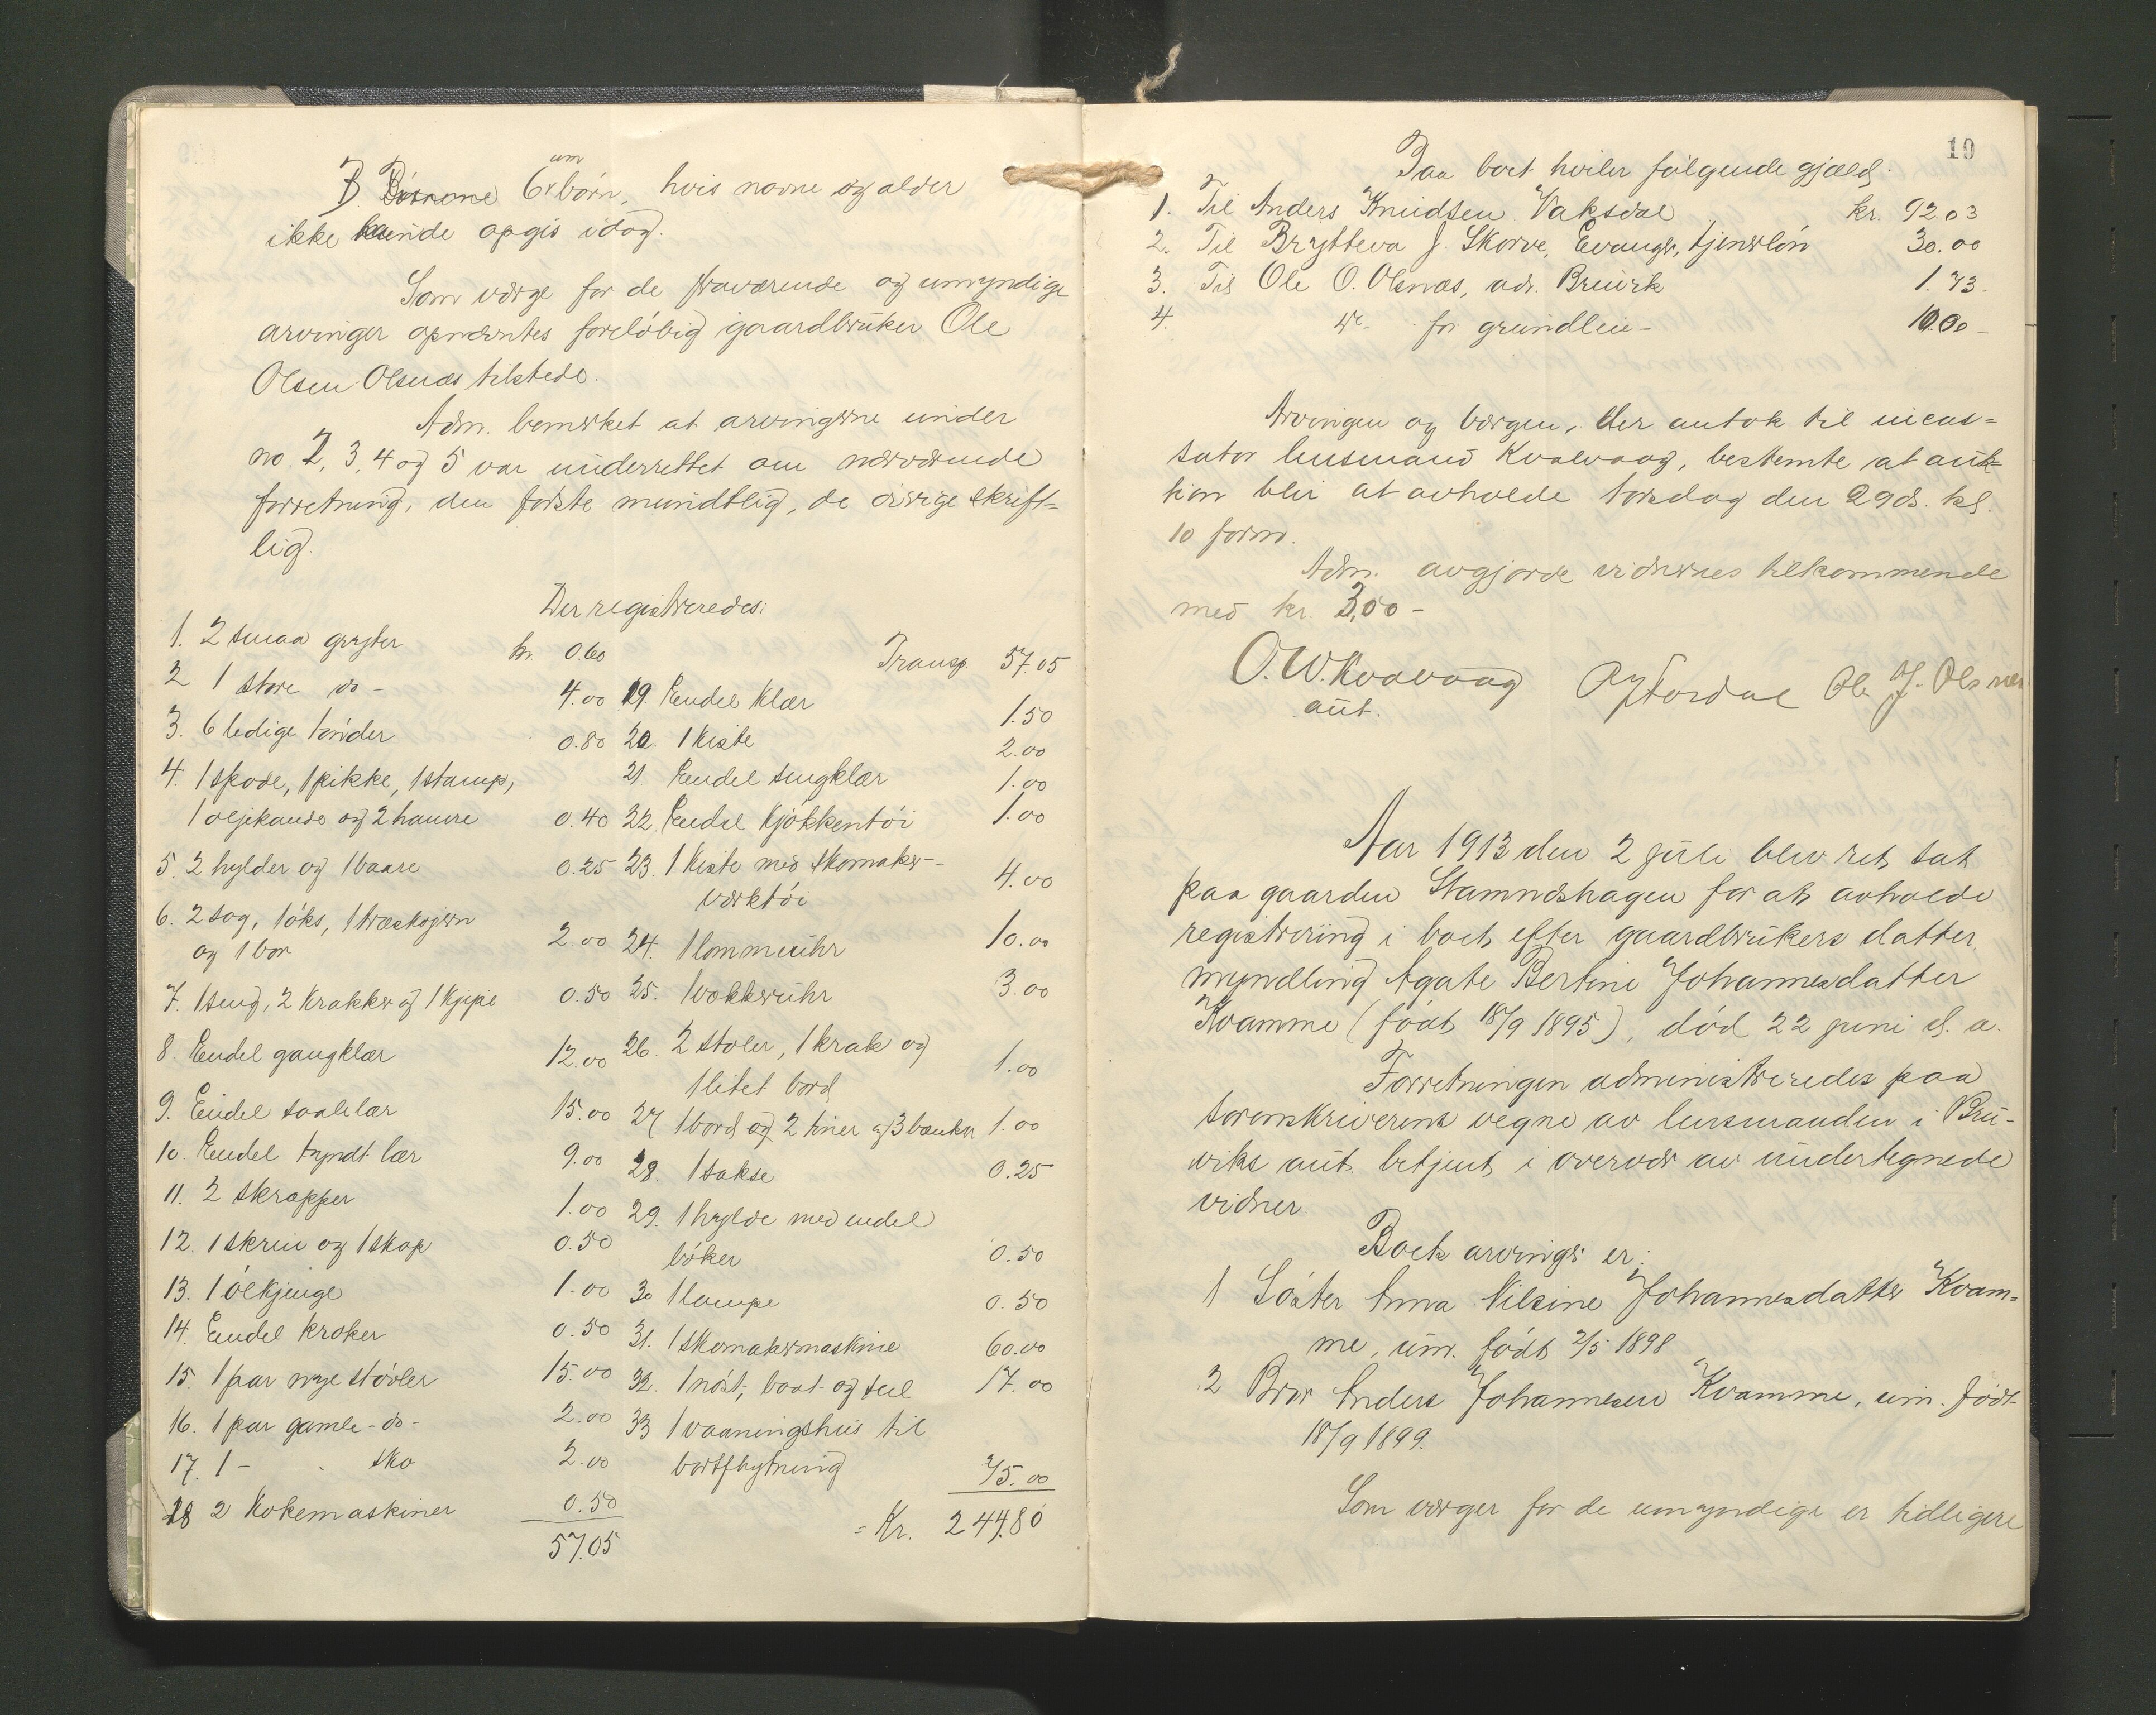 um
6 børn, hvis navne og alder
ikke kunde opgis idag.
Som værge for de fraværende og umyndige
arvinger opnævntes foreløbig gaardbruker Ole
Olsen Olsnæs tilstede.
Adm. bemerket at arvingerne under
no. 2, 3, 4 og 5 var underrettet om nærværende
forretning, den første mundtlig, de øvrige skrift=
lig.
Der registreredes:
1. 2 smaa gryter kr. 0.60
2 1 store do - 4.00
3. 6 ledige tønder 0.80
4. 1 spade, 1 pikke, 1 stamp,
1 oljekande og 2 hamre 0.40
5. 2 hylder og 1 baare 0.25
6. 2 sag, 1 øks, 1 træskojern
og 1 bor 2.00
7. 1 seng, 2 krakker og 1 kjipe 0.50
8. Endel gangklær 12.00
9. Endel saalelær 15.00
10. Endel tyndt lær 9.00
11. 2 skrapper 1.00
12. 1 skrin og 1 skap 0.50
13. 1 ølkjenge 1.00
14. Endel kroker 0.50
15. 1 par nye støvler 15.00
16. 1 par gamle - do - 2.00
17. 1 - sko 2.00
18 2 Kokemaskiner 0.50
57.05
Transp. 57.05
19. Endel klær 1.50
20. 1 kiste 2.00
21 Endel sengklær 1.00
22. Endel kjøkkentøi 1.00
23. 1 kiste med skomaker-
verktøi 4.00
24. 1 lommeuhr 10.00
25. 1 vækkeruhr 3.00
26. 2 stoler, 1 krak og
1 litet bord 1.00
27 1 bord og 2 tiner og 3 bænker 1.00
28. 1 sakse 0.25
29. 1 hylde med endel
bøker 0.50
30 1 lampe 0.50
31. 1 skomakermaskine 60.00
32. 1 nøst, baat og seil 17.00
33 1 vaaningshus til
bortflytning 75.00
= Kr. 244.80
19
Paa boet hviler følgende gjæld:
1. Til Anders Knudsen Vaksdal kr. 92.03
2. Til Brytteva J. Skorve, Evanger, tjenerløn 30.00
3. Til Ole O. Olsnæs, adr. Bruvik 1.73
4. do for grundleie - 10.00 -
Arvingen og værgen, der antok til incas=
sator lensmand Kvalvaag, bestemte at auk=
tion blir at avholde torsdag den 29 ds. kl.
10 form.
Adm. avgjorde vidnernes tilkommende
med kr. 3,00 -
O. W. Kvalvaag
aut.
Ole J. Olsnæs
Aar 1913 den 2 juli blev ret sat
paa gaarden Stamneshagen for at avholde
registrering i boet efter gaardbrukers datter
myndling Agate Bertine Johannesdatter
Kvamme (født 18/9 1895), død 22 juni d. a.
Forretningen administreredes paa
sorenskriverens vegne av lensmanden i Bru-
viks aut. betjent i overvær av undertegnede
vidner.
Boets arvinger er:
1 Søster Anna Nilsine Johannesdatter Kvam=
me, um. født 2/5 1898
2 Bror Anders Johannesen Kvamme, um. født
18/9 1899.
Som værger for de umyndige er tidligere